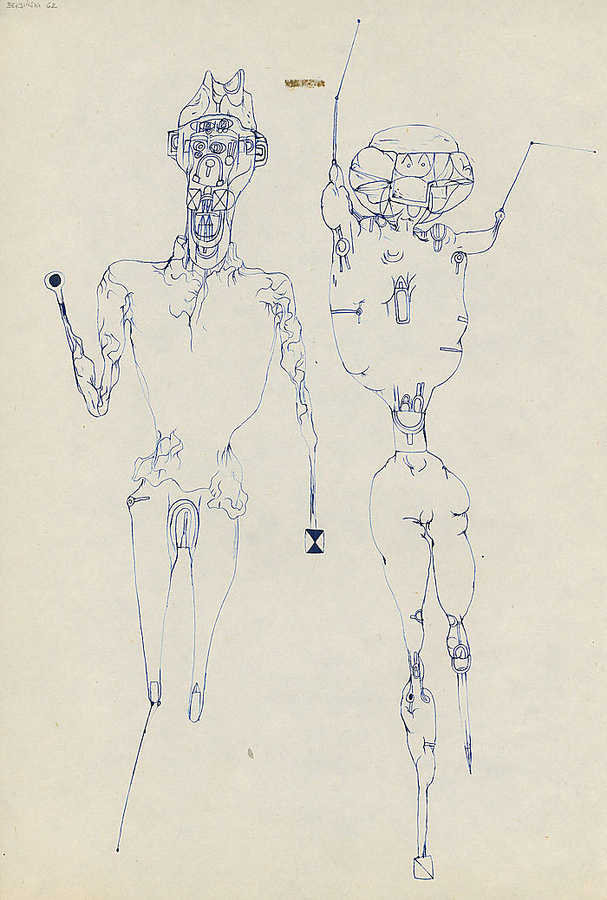 BEKSIŃSKI 62